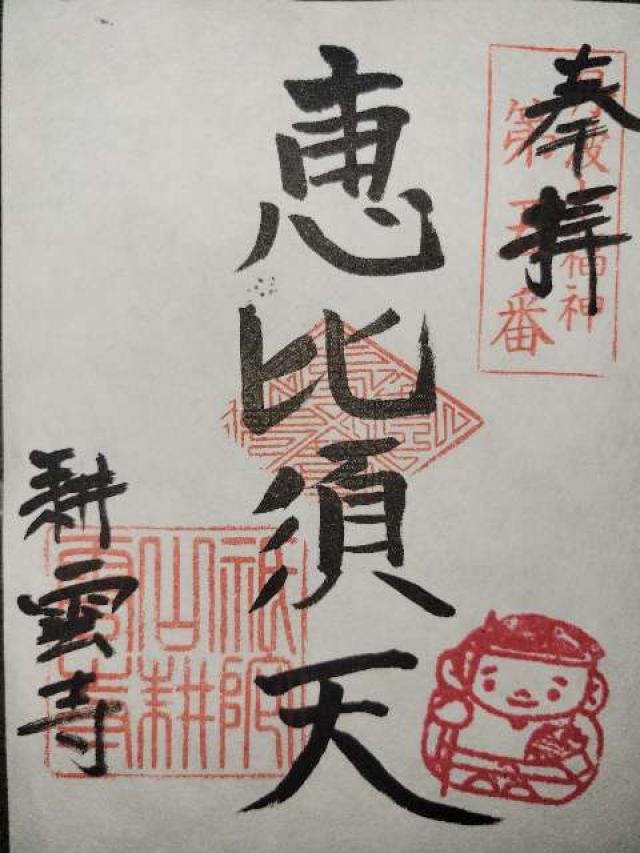 奉拝
丹波七福神
第五番
恵比須天
耕雲寺
祇陀
山耕
雲寺